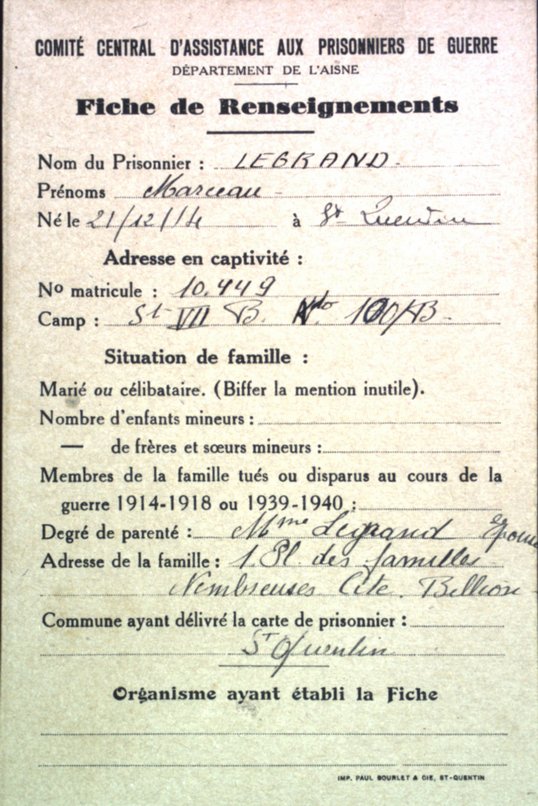 COMITÉ CENTRAL D'ASSISTANCE AUX PRISONNIERS DE GUERRE
DÉPARTEMENT DE L'AISNE
Fiche de Renseignements
Nom du Prisonnier : LEGRAND
Prénoms Marceau
Né le 21/12/14 à St Quentin
Adresse en captivité :
No matricule : 10.449
Camp : St VII B. Kdo 100/B
Situation de famille :
Marié ou célibataire. (Biffer la mention inutile).
Nombre d'enfants mineurs :
— de frères et sœurs mineurs :
Membres de la famille tués ou disparus au cours de la
guerre 1914-1918 ou 1939-1940 :
Degré de parenté : Mme Legrand épouse
Adresse de la famille : 1. Pl. des familles
Nombreuses Cité
Commune ayant délivré la carte de prisonnier :
St Quentin
Organisme ayant établi la Fiche
IMP. PAUL BOURLET & CIE, ST-QUENTIN